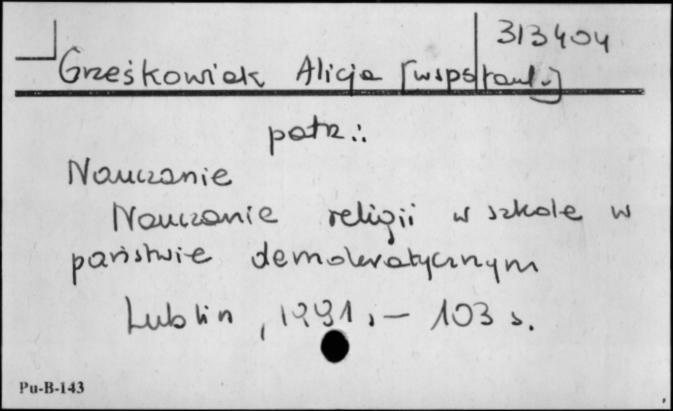 313404
Grześkowiak Alicja [współaut.]
patz.:
Nauczanie
Nauczanie religii w szkole w
państwie demokratycznym
Lublin, 1991. – 103 s.
Pu-B-143